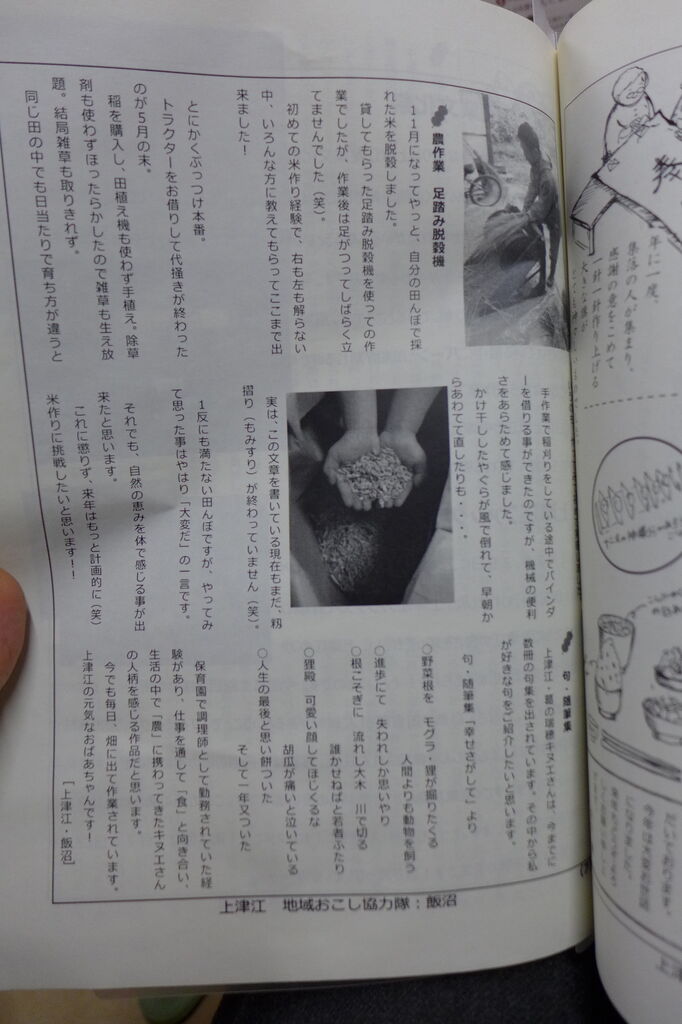 農作業 足踏み脱穀機
11月になってやっと、自分の田んぼで採
れた米を脱穀しました。
貸してもらった足踏み脱穀機を使っての作
業でしたが、作業後は足がつってしばらく立
てませんでした(笑)。
初めての米作り経験で、右も左も解らない
中、いろんな方に教えてもらってここまで出
来ました!
とにかくぶっつけ本番。
トラクターをお借りして代掻きが終わった
のが5月の末。
稲を購入し、田植え機も使わず手植え。除草
剤も使わずほったらかしたので雑草も生え放
題。結局雑草も取りきれず。
同じ田の中でも日当たりで育ち方が違うと
手作業で稲刈りをしている途中でバインダ
ーを借りる事ができたのですが、機械の便利
さをあらためて感じました。
かけ干ししたやぐらが風で倒れて、早朝か
らあわてて直したりも・・・。
実は、この文章を書いている現在もまだ、籾
摺り(もみすり)が終わっていません(笑)。
1反にも満たない田んぼですが、やってみ
て思った事はやはり「大変だ」の一言です。
それでも、自然の恵みを体で感じる事が出
来たと思います。
これに懲りず、来年はもっと計画的に(笑)
米作りに挑戦したいと思います!!
句・随筆集
上津江・葛の瑞穂キヌエさんは、今までに
数冊の句集を出されています。その中から私
が好きな句をご紹介したいと思います。
句・随筆集「幸せさがして」より
○野菜根を モグラ・狸が掘りたくる
人間よりも動物を飼う
○進歩にて 失われしか思いやり
○根こそぎに 流れし大木 川で切る
誰かせねばと若者ふたり
○狸殿 可愛い顔してほじくるな
胡瓜が痛いと泣いている
○人生の最後と思い餅ついた
そして一年又ついた
保育園で調理師として勤務されていた経
験があり、仕事を通して「食」と向き合い、
生活の中で「農」に携わってきたキヌエさん
の人柄を感じる作品だと思います。
今でも毎日、畑に出て作業されています。
上津江の元気なおばあちゃんです!
[上津江・飯沼]
上津江 地域おこし協力隊:飯沼
年に一度、
集落の人が集まり、
感謝の意をこめて
一針一針作り上げる